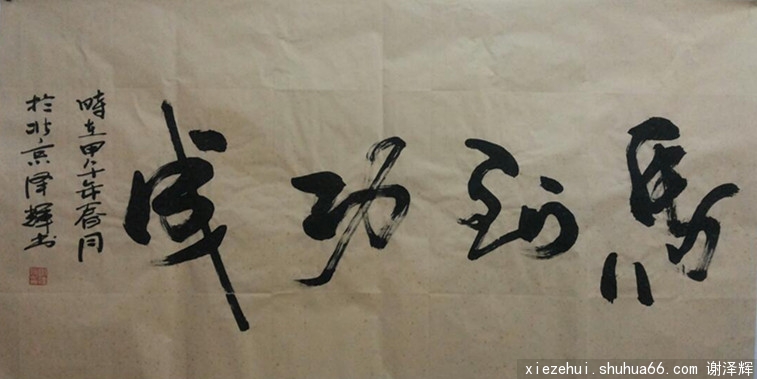 馬到功成
時在甲午年春月
於北京泽輝书
xiezehui.shuhua66.com 谢泽辉